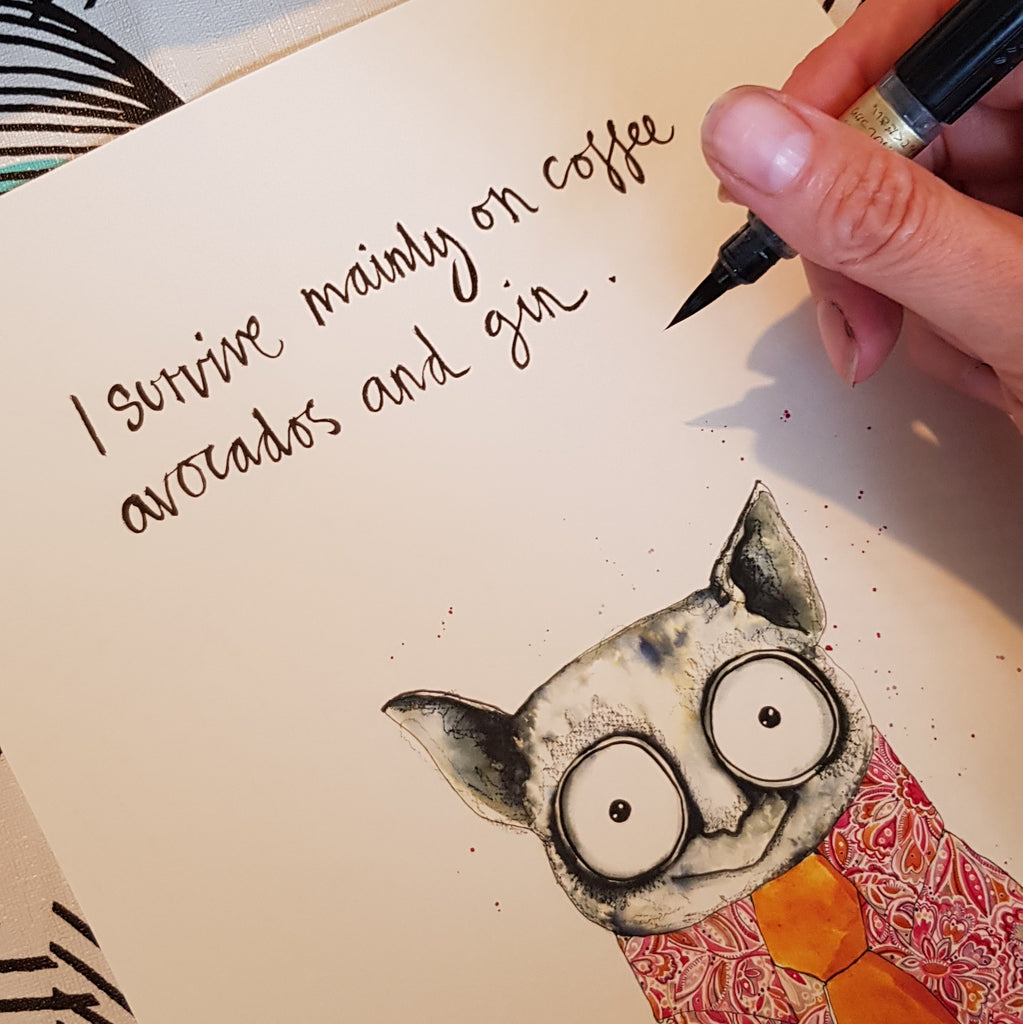 I survive mainly on coffee
avocados and gin .